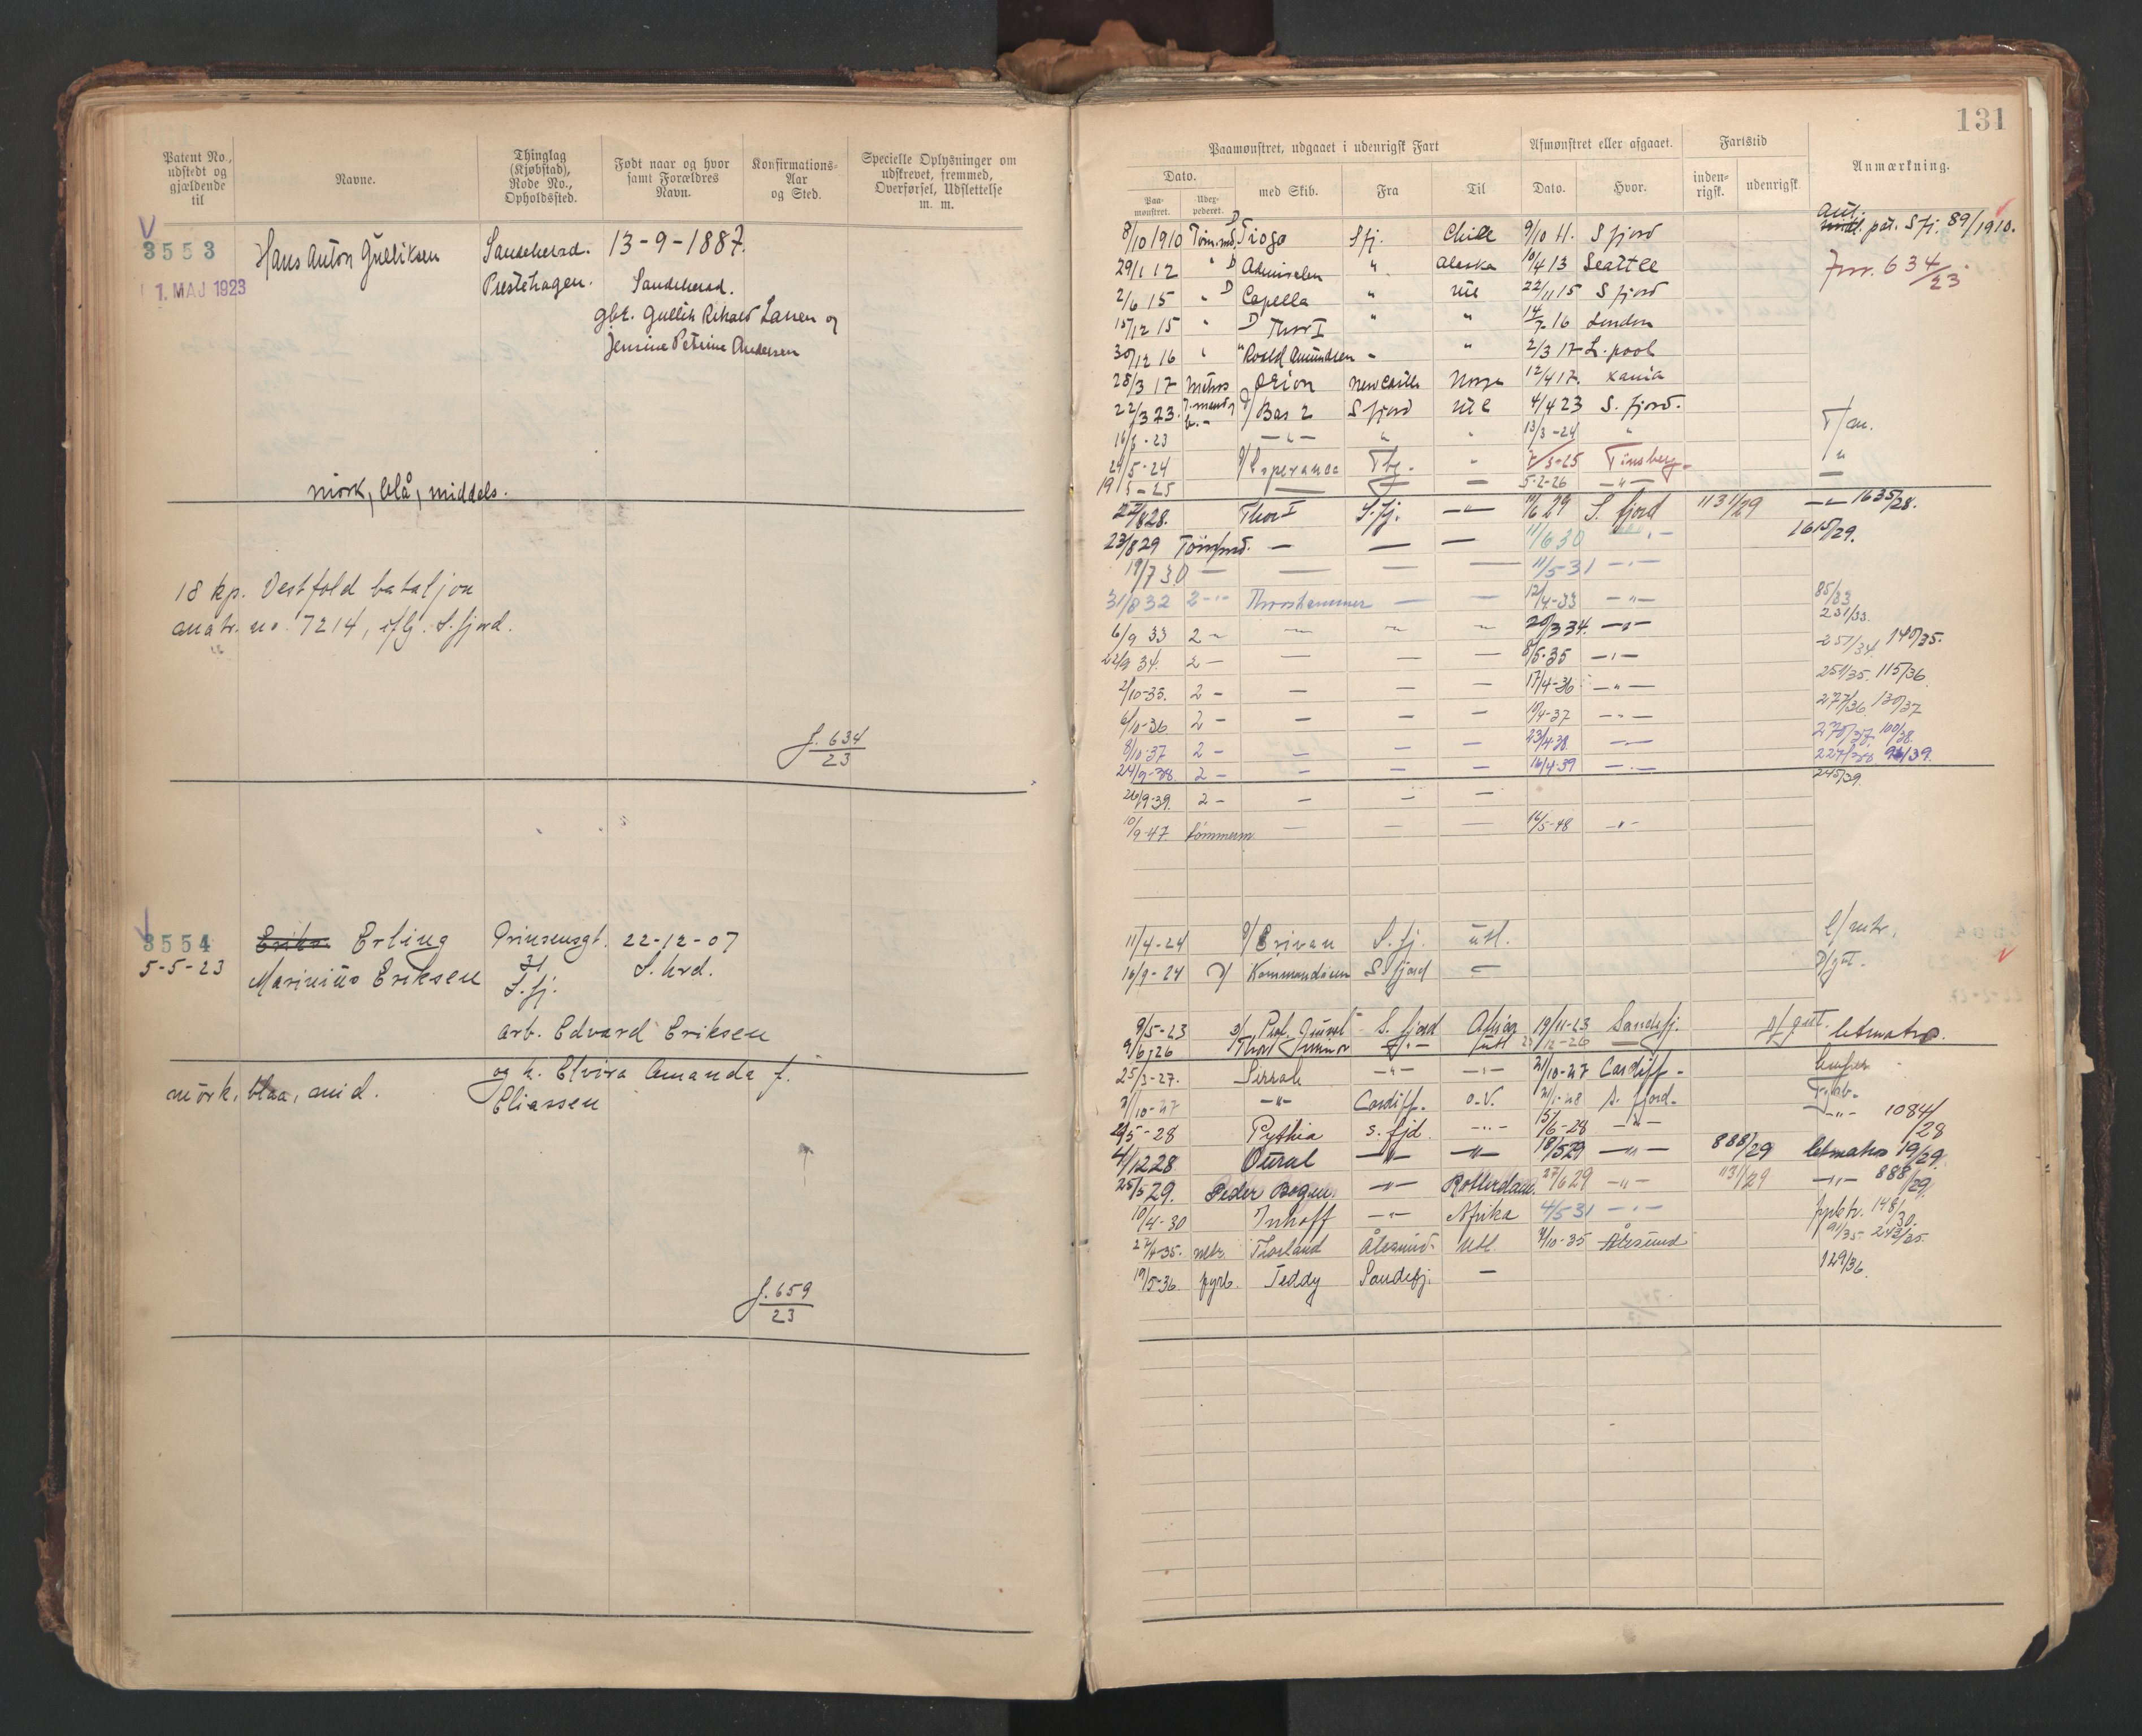 131
Patent No., udstedt og gjældende til
Navne.
Thinglag (Kjøbstad), Rode No., Opholdssted.
Født naar og hvor samt Forældres Navn.
Konfirmations-Aar og Sted.
Specielle Oplysninger om udskrevet, fremmed, Overførsel, Udslettelse m. m.
Paamønstret, udgaaet i udenrigsk Fart
Afmønstret eller afgaaet.
Fartstid
Anmærkning.
Dato.
med Skib.
Fra
Til
Dato.
Hvor.
inden-rigsk.
udenrigsk
Paa-mønstret.
3553
1. MAJ 1923
Hans Anton Gulliksen
Sandeherad.
Prestehagen.
13-9-1887.
Sandeherad.
gbr. Gullik Rikard Larsen og
Jensine Petrine Andersen
mørk, blå, middels.
18 kp. Vestfold bataljon
no. 7214, S.fjord.
J. 634
23
8/10 1910 Tioga Sfj. Chile 9/10 11. Sfjord pat. Sfj. 89/1910.
29/1 12 " D Admiralen " Alaska 10/4 13 Seattle 634/23
2/6 15 " D Capella " Utl 22/11 15 Sfjord
15/12 15 " D Thor I " " 14/7-16 London
30/12 16 " " Roald Amundsen - " 2/3 17 L.pool
28/3 17 Matros Orion Newcastle Norge 12/4 17. Kania
22/3 23. Bas 2 Sfjord Utl 4/4 23 S. fjord.
-"- " " 13/3-24 "
5-24 Esperance Tbg. - Tønsberg.
5-25 5-2-26 -"-
22/8 28. Thor I S.fj. -"- 11/6 29 S. fjord 1131/29 -"- 1635/28.
23/8 29 Tømmd. — — — 11/6 30 1615/29.
19/7 30 — — — — 11/5-31 -"-
31/8 32 2-"- Thorshammer — — 12/4-33 -"- 85/33
231/33.
6/9 33 2 " 20/3 34. -"-
22/9 34. 2 — — — — 8/5-35 -"- 251/34. 140/35.
2/10-35. 2 - — — — 17/4-36 -"- 251/35. 115/36
6/10-36 2 - — — — 10/4-37 -"- 277/36. 130/37
8/10-37 2 - — — — 23/4-38 -"- 100/38.
24/9-38. 2 - — — — 16/4-39 -"- 94/39.
245/39
26/9-39. 2 - — — —
10/9-47. tømmerm — — — 12/5-48 -"-
3554
5-5-23
Erling
Marinius Eriksen
Prinsensgt.
31
S.fj.
22-12-07
S.hrd.
arb. Edvard Eriksen
og h. Elvira Amanda f.
Eliassen
mørk, blaa, mid.
J. 659
23
11/4-24 Erivan S.fj. utl.
16/9-24 Kommandøren S.fjord —
9/5-23 Prof. Gruvel S. fjord Afrika 19/11-23 Sandefj.
26 utl 12-26 letmatros.
25/3-27. Sirrah -"- -"- 21/10-27 Cardiff -
10-27 -"- Cardiff. o.V. S. fjord.
5-28 Pythia S. fjd. -"- 15/6-28 -"- -"- 1084/28
4/12 28 Ural -"- -"- 18/5 29 -"- 888/29 letmatros 19/29.
25/5 29. Peder Bogen -"- Rotterdam. 27/6 29 -"- 1131/29 -"- 888/29.
10/4-30 Inhoff -"- Afrika 4/5 31 -"- 148/30.
27/4-35. matr. Thorland Ålesund. Utl. 4/10-35 Ålesund 91/35 242/35
19/5-36. fyrb. Teddy Sandefj. — 129/36.